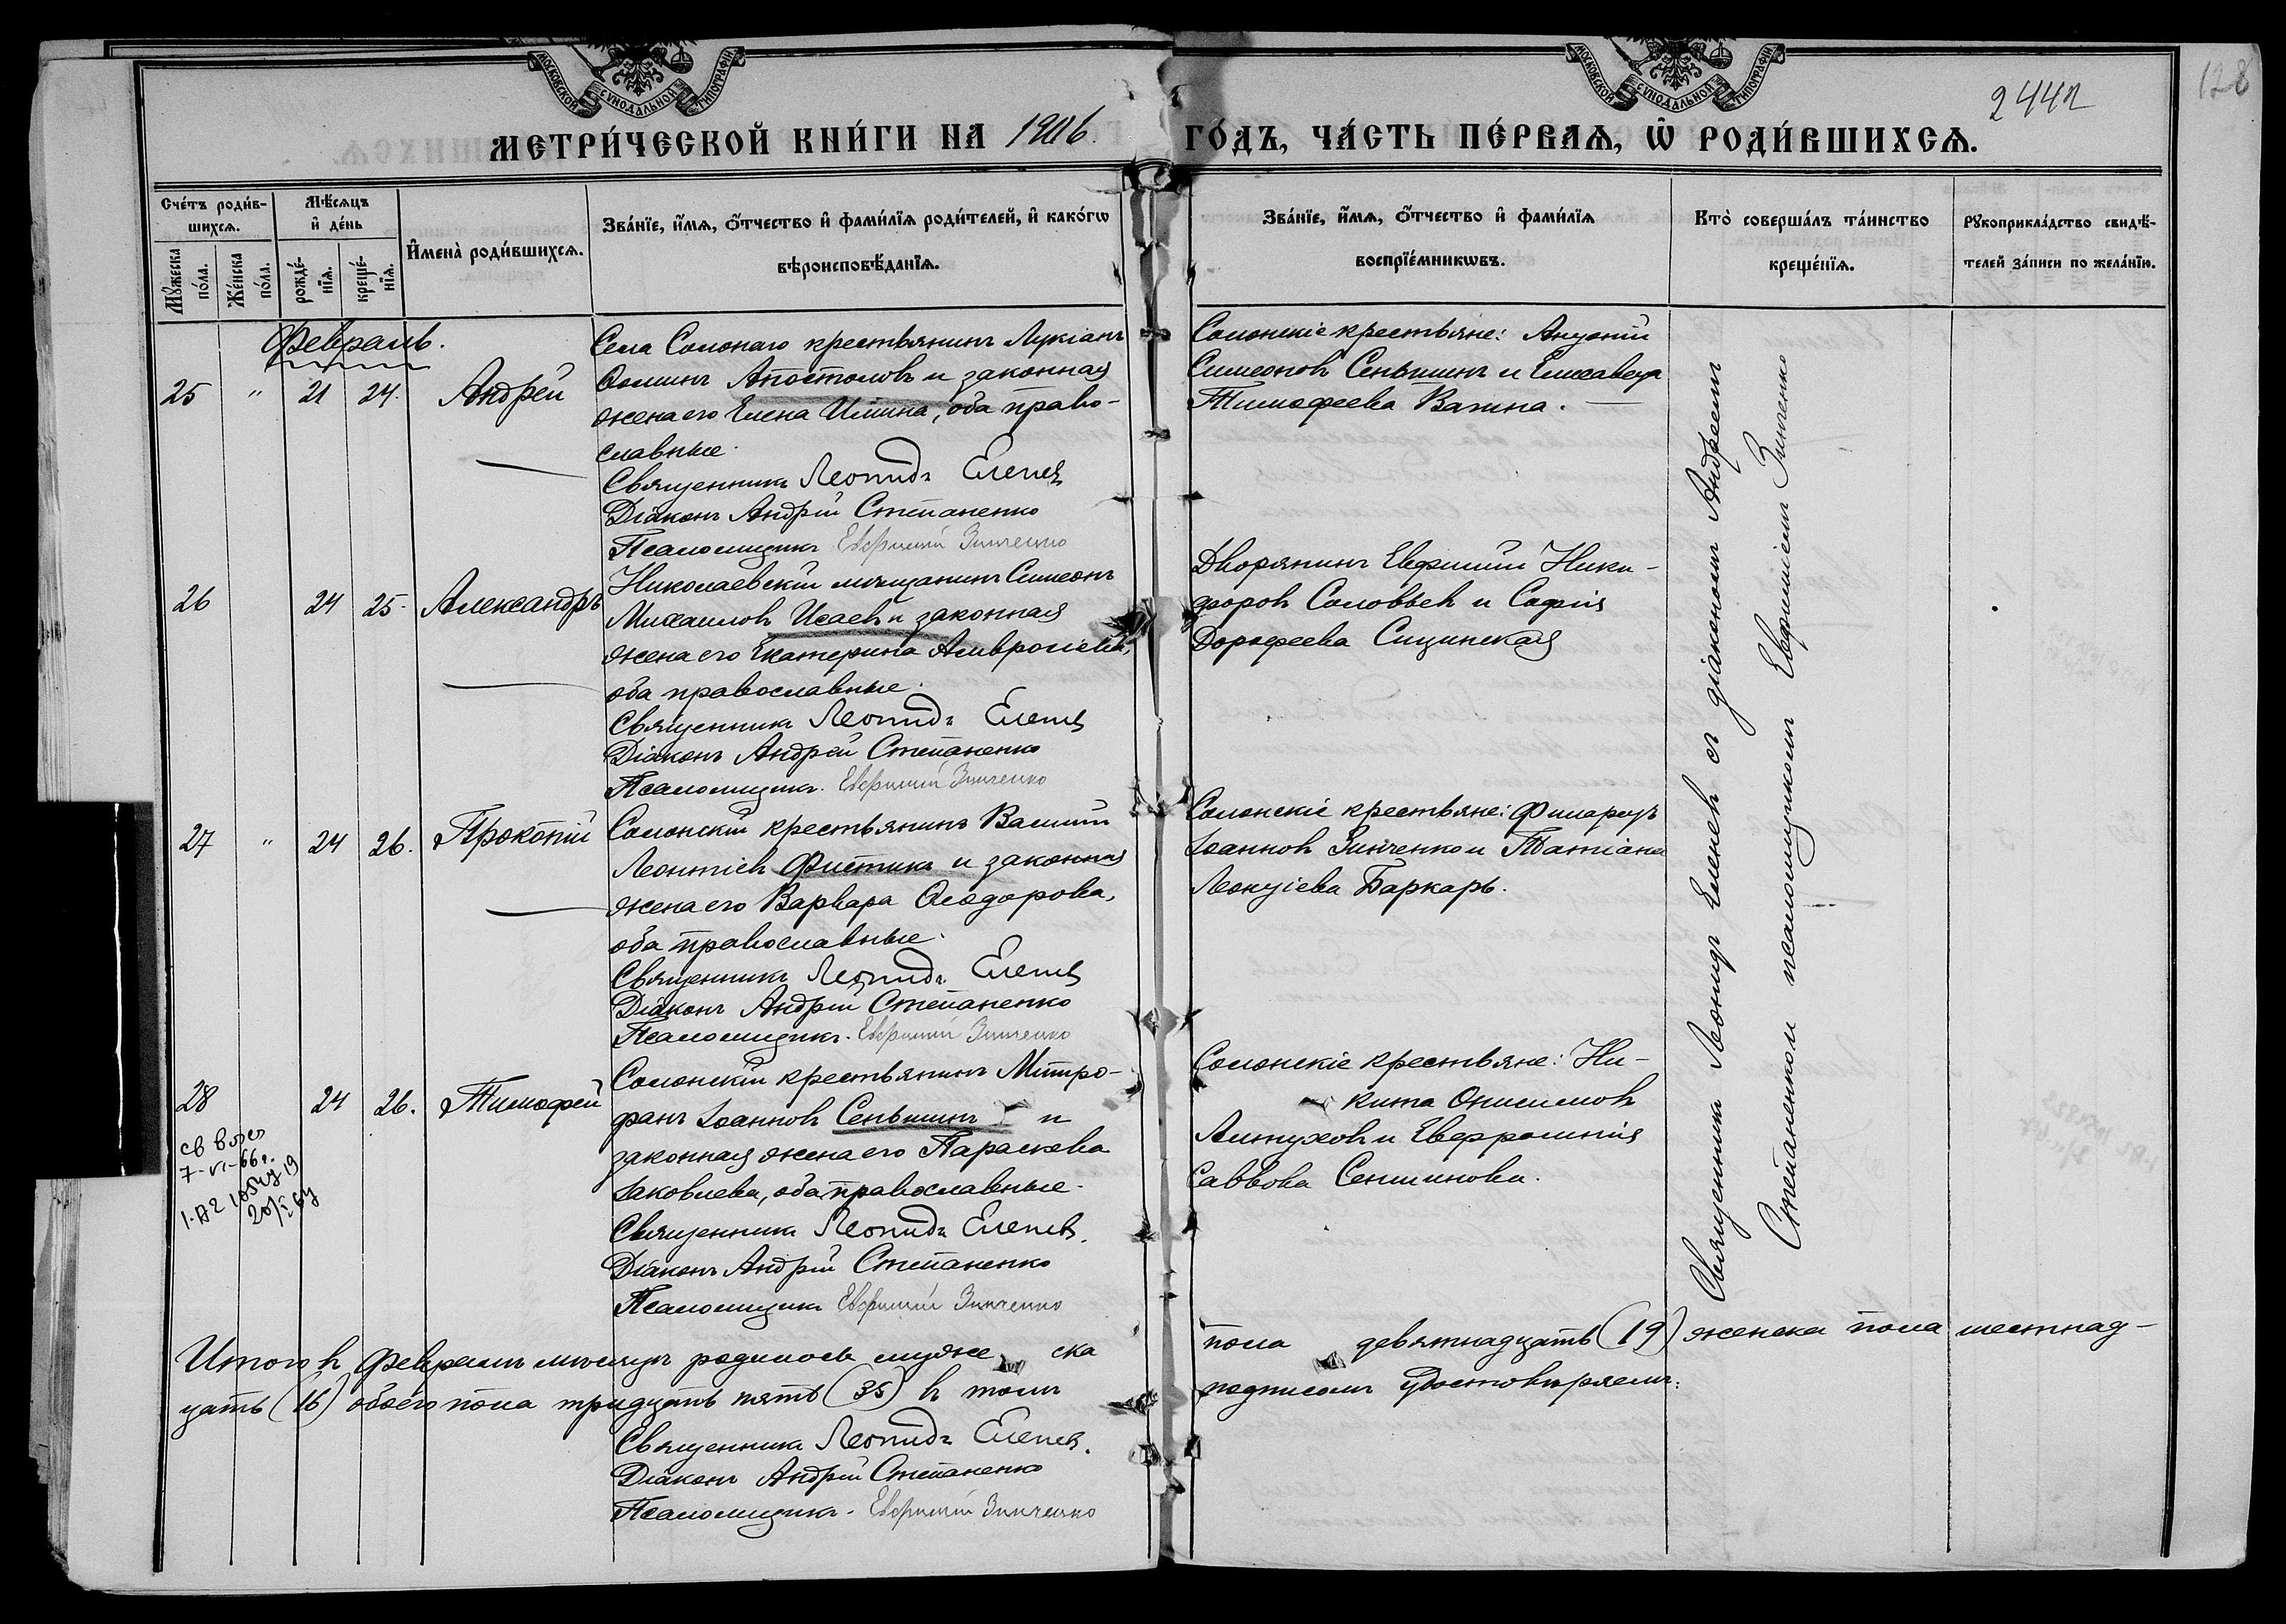 МОСКОВСКОЙ СѴНОДАЛЬНОЙ ТИПОГРАФІИ
МОСКОВСКОЙ СѴНОДАЛЬНОЙ ТИПОГРАФІИ
128
244
МЕТРИ́ЧЕСКОЙ КНИ́ГИ НА 1906. ГО́ДЪ, ЧА́СТЬ ПЕ́РВАѦ, Ѡ҆ РОДИ́ВШИХСѦ.
Сче́тъ роди́в-
шихсѧ.
Мꙋ́жеска по́ла.
Же́нска по́ла.
Мѣ́сѧцъ и҆ де́нь
рожде́-нїѧ.
креще́-нїѧ.
И҆мена̀ роди́вшихсѧ.
Зва́нїе, и҆́мѧ, ѻ҆́тчество и҆ фами́лїѧ роди́телей, и҆ како́гѡ
вѣроисповѣ́данїѧ.
Зва́нїе, и҆́мѧ, ѻ҆́тчество и҆ фами́лїѧ
воспрїе́мникѡвъ.
Кто̀ соверша́лъ та́инство
креще́нїѧ.
Рꙋкоприкла́дство свидѣ́-
телей за́писи по жела́нїю.
Февраль.
25 " 21 24. Андрей
Села Солонаго крестьянинъ Лукіанъ
Ѳоминъ Апостоловъ и законная
жена его Елена Ильина, оба право-
славные.
Священникъ Леонидъ Еленевъ
Діаконъ Андрій Степаненко
Псаломщикъ Евфимій Зинченко
Солонскіе крестьяне: Антоній
Симеоновъ Сеньшинъ и Елисавета
Тимофеева Вагина.
26 24 25. Александръ
Николаевскій мѣщанинъ Симеонъ
Михаиловъ Исаевъ и законная
жена его Екатерина Амвросіева,
оба православные.
Священникъ Леонидъ Еленевъ
Діаконъ Андрей Степаненко
Псаломщикъ. Евфимій Зинченко
Дворянинъ Евфимій Ники-
форовъ Соловьевъ и Софія
Дорофеева Сицинская
27 " 24 26. Прокопій
Солонскій крестьянинъ Василій
Леонтіевъ Фистика и законная
жена его Варвара Ѳеодорова,
оба православные.
Священникъ Леонидъ Еленевъ
Діаконъ Андрій Степаненко
Псаломщикъ. Евфимій Зинченко
Солонскіе крестьяне: Филаретъ
Іоанновъ Зинченко и Татіана
Леонтіева Баркарь.
28 24 26. Тимофей
7-VI-66г.
Солонскій крестьянинъ Митро-
фанъ Іоанновъ Сеньшинъ и
законная жена его Параскева
Іаковлева, оба православные.
Священникъ Леонидъ Еленевъ.
Діаконъ Андрій Степаненко
Псаломщикъ Евфимій Зинченко
Солонскіе крестьяне: Ни-
кита Онисимовъ
Алтуховъ и Евфросинія
Саввова Сеншинова.
Священникъ Леонидъ Еленевъ съ діакономъ Андреемъ
Степаненкомъ псаломщикомъ Евфиміемъ Зинченко
Итого въ Февралѣ мѣсяцѣ родилось муже ска пола девятнадцать (19) женска пола шестнад-
цать (16) обоего пола тридцать пять (35) въ томъ подписомъ удостовѣряемъ:
Священникъ Леонидъ Еленевъ.
Діаконъ Андрій Степаненко
Псаломщикъ. Евфимій Зинченко